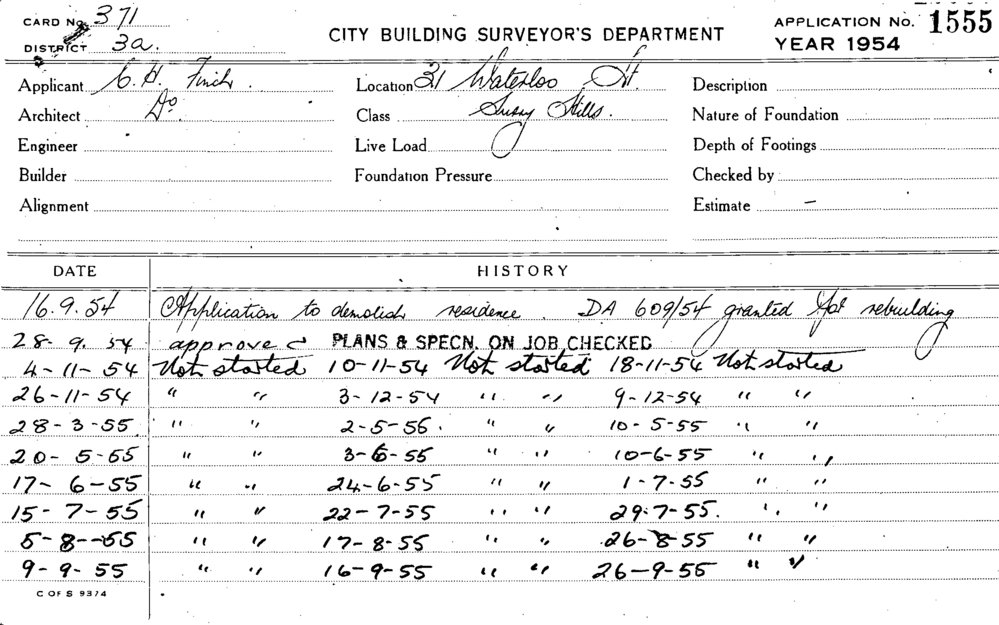 CARD No. 371
DISTRICT 3a.
CITY BUILDING SURVEYOR'S DEPARTMENT
APPLICATION No. 1555
YEAR 1954
Applicant C. H. Finch. Location 31 Waterloo St. Description
Architect Do. Class Surry Hills. Nature of Foundation
Engineer Live Load Depth of Footings
Builder Foundation Pressure Checked by
Alignment Estimate –
DATE HISTORY
16.9.54 Application to demolish residence. DA 609/54 granted for rebuilding
28-9.54 approved PLANS & SPECN. ON JOB CHECKED
4-11-54 Not started 10-11-54 Not started 18-11-54 Not started
26-11-54 " " 3-12-54 " " 9-12-54 " "
28-3-55 " " 2-5-56. " " 10-5-55 " "
20-5-55 " " 3-6-55 " " 10-6-55 " "
17-6-55 " " 24-6-55 " " 1-7-55 " "
15-7-55 " " 22-7-55 " " 29.7-55. " "
5-8-55 " " 17-8-55 " " 26-8-55 " "
9-9-55 " " 16-9-55 " " 26-9-55 " "
C OF S 9374